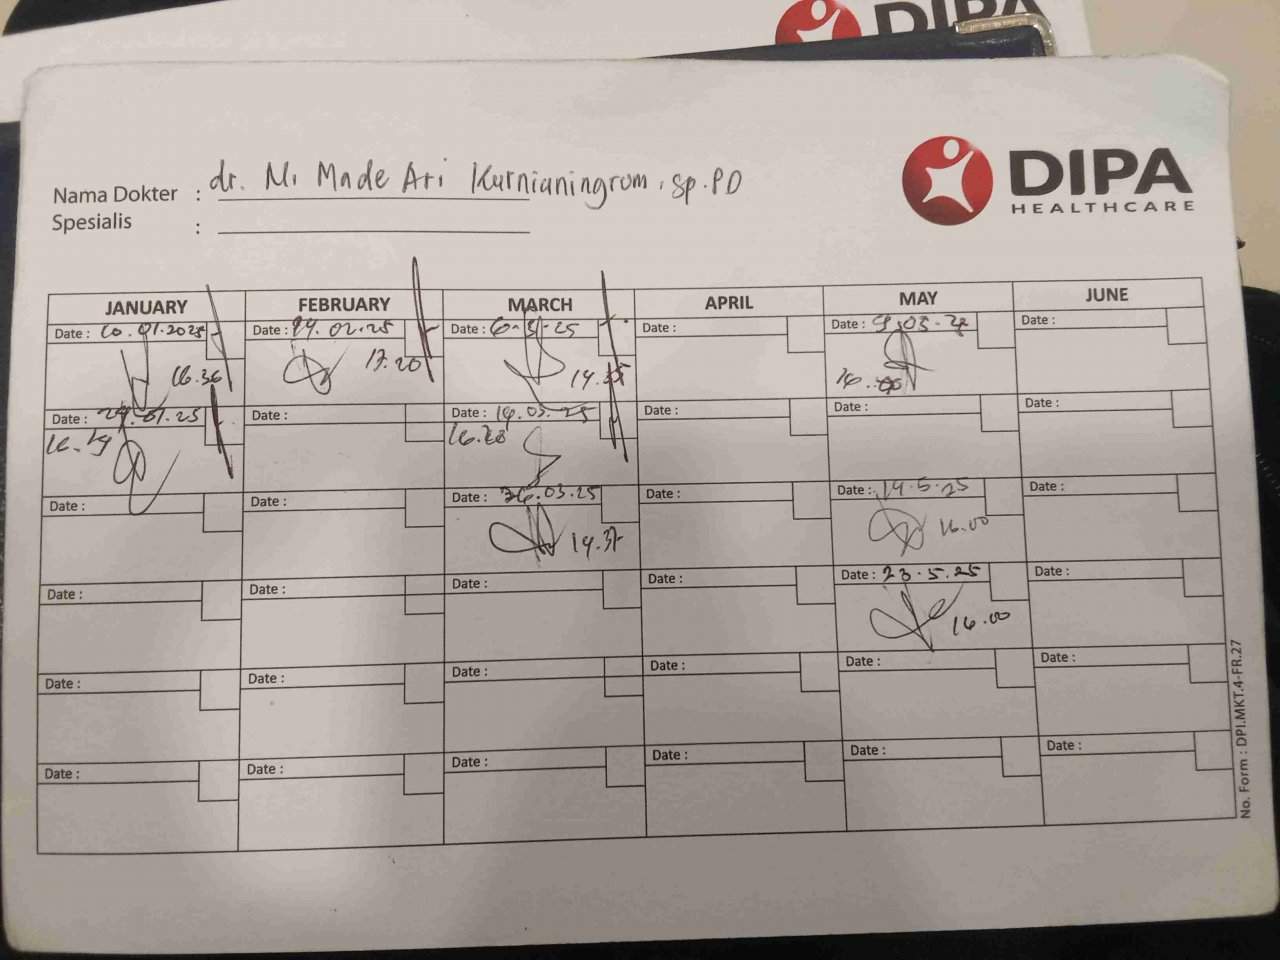 DIPA
DIPA
HEALTHCARE
Nama Dokter : dr. Ni Made Ari Kurnianingrum, Sp.PD
Spesialis :
JANUARY FEBRUARY MARCH APRIL MAY JUNE
Date : 10.01.2025 Date : 14.02.25 Date : 6-3-25 Date : Date : Date :
16.36 17.20 14.35
Date : 24.01.25 Date : Date : 14.03.25 Date : Date : Date :
16.19 16.28
Date : Date : Date : 26.03.25 Date : Date : 14.5.25 Date :
14.37 16.00
Date : Date : Date : Date : Date : 23.5.25 Date :
16.00
Date : Date : Date : Date : Date : Date :
Date : Date : Date : Date : Date : Date :
No. Form : DPI.MKT.4-FR.27